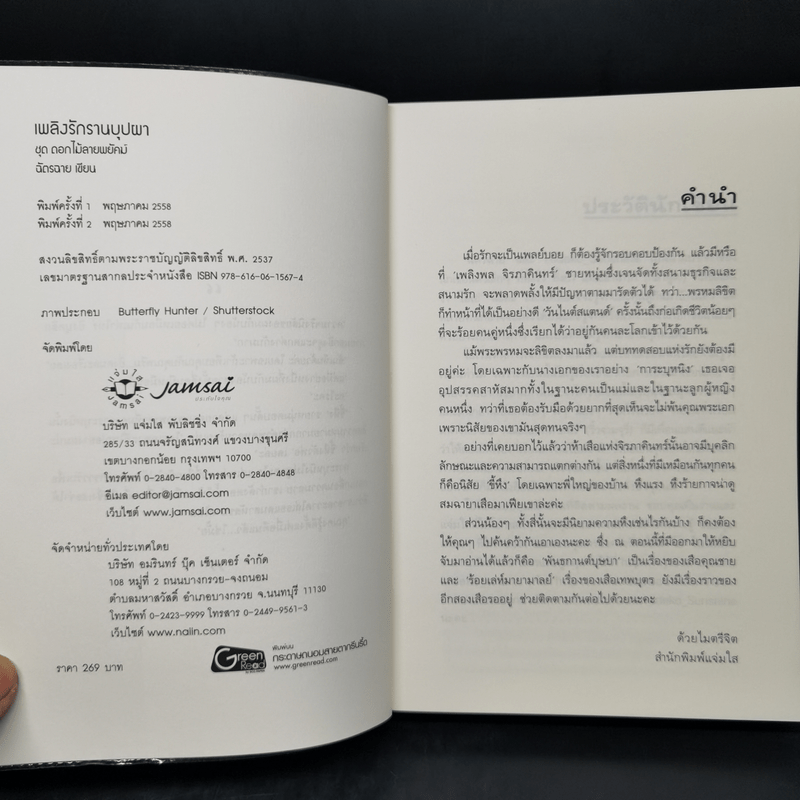 เพลิงรักรานบุปผา
ชุด ดอกไม้ลายพยัคฆ์
ฉัตรฉาย เขียน
พิมพ์ครั้งที่ 1 พฤษภาคม 2558
พิมพ์ครั้งที่ 2 พฤษภาคม 2558
สงวนลิขสิทธิ์ตามพระราชบัญญัติลิขสิทธิ์ พ.ศ. 2537
เลขมาตรฐานสากลประจำหนังสือ ISBN 978-616-06-1567-4
ภาพประกอบ Butterfly Hunter / Shutterstock
จัดพิมพ์โดย
แจ่มใส
Jamsai
Jamsai
บริษัท แจ่มใส พับลิชชิ่ง จำกัด
285/33 ถนนจรัญสนิทวงศ์ แขวงบางขุนศรี
เขตบางกอกน้อย กรุงเทพฯ 10700
โทรศัพท์ 0-2840-4800 โทรสาร 0-2840-4848
อีเมล editor@jamsai.com
เว็บไซต์ www.jamsai.com
จัดจำหน่ายทั่วประเทศโดย
บริษัท อมรินทร์ บุ๊ค เซ็นเตอร์ จำกัด
108 หมู่ที่ 2 ถนนบางกรวย-จงถนอม
ตำบลมหาสวัสดิ์ อำเภอบางกรวย จ.นนทบุรี 11130
โทรศัพท์ 0-2423-9999 โทรสาร 0-2449-9561-3
เว็บไซต์ www.naiin.com
ราคา 269 บาท
Green Read
พิมพ์บน
กระดาษถนอมสายตากรีนรี้ด
www.greenread.com
คำนำ
เมื่อรักจะเป็นเพลย์บอย ก็ต้องรู้จักรอบคอบป้องกัน แล้วมีหรือ
ที่ 'เพลิงพล จิรภาคินทร์' ชายหนุ่มซึ่งเจนจัดทั้งสนามธุรกิจและ
สนามรัก จะพลาดพลั้งให้มีปัญหาตามมารัดตัวได้ ทว่า...พรหมลิขิต
ก็ทำหน้าที่ได้เป็นอย่างดี 'วันไนต์สแตนด์' ครั้งนั้นถึงก่อเกิดชีวิตน้อยๆ
ที่จะร้อยคนคู่หนึ่งซึ่งเรียกได้ว่าอยู่กันคนละโลกเข้าไว้ด้วยกัน
แม้พระพรหมจะลิขิตลงมาแล้ว แต่บททดสอบแห่งรักยังต้องมี
อยู่ค่ะ โดยเฉพาะกับนางเอกของเราอย่าง 'การะบุหนิง' เธอเจอ
อุปสรรคสาหัสมากทั้งในฐานะคนเป็นแม่และในฐานะลูกผู้หญิง
คนหนึ่ง ทว่าที่เธอต้องรับมือด้วยยากที่สุดเห็นจะไม่พ้นคุณพระเอก
เพราะนิสัยของเขามันสุดทนจริงๆ
อย่างที่เคยบอกไว้แล้วว่าห้าเสือแห่งจิรภาคินทร์นั้นอาจมีบุคลิก
ลักษณะและความสามารถแตกต่างกัน แต่สิ่งหนึ่งที่มีเหมือนกันทุกคน
ก็คือนิสัย 'ขี้หึง' โดยเฉพาะพี่ใหญ่ของบ้าน หึงแรง หึงร้ายกาจน่าดู
สมฉายาเสือมาเฟียเขาล่ะค่ะ
ส่วนน้องๆ ทั้งสี่นั้นจะมีนิยามความหึงเช่นไรกันบ้าง ก็คงต้อง
ให้คุณๆ ไปค้นคว้ากันเอาเองนะคะ ซึ่ง ณ ตอนนี้ที่มีออกมาให้หยิบ
จับมาอ่านได้แล้วก็คือ 'พันธกานต์บุษบา' เป็นเรื่องของเสือคุณชาย
และ 'ร้อยเล่ห์มายามาลย์' เรื่องของเสือเทพบุตร ยังมีเรื่องราวของ
อีกสองเสือรออยู่ ช่วยติดตามกันต่อไปด้วยนะคะ
ด้วยไมตรีจิต
สำนักพิมพ์แจ่มใส